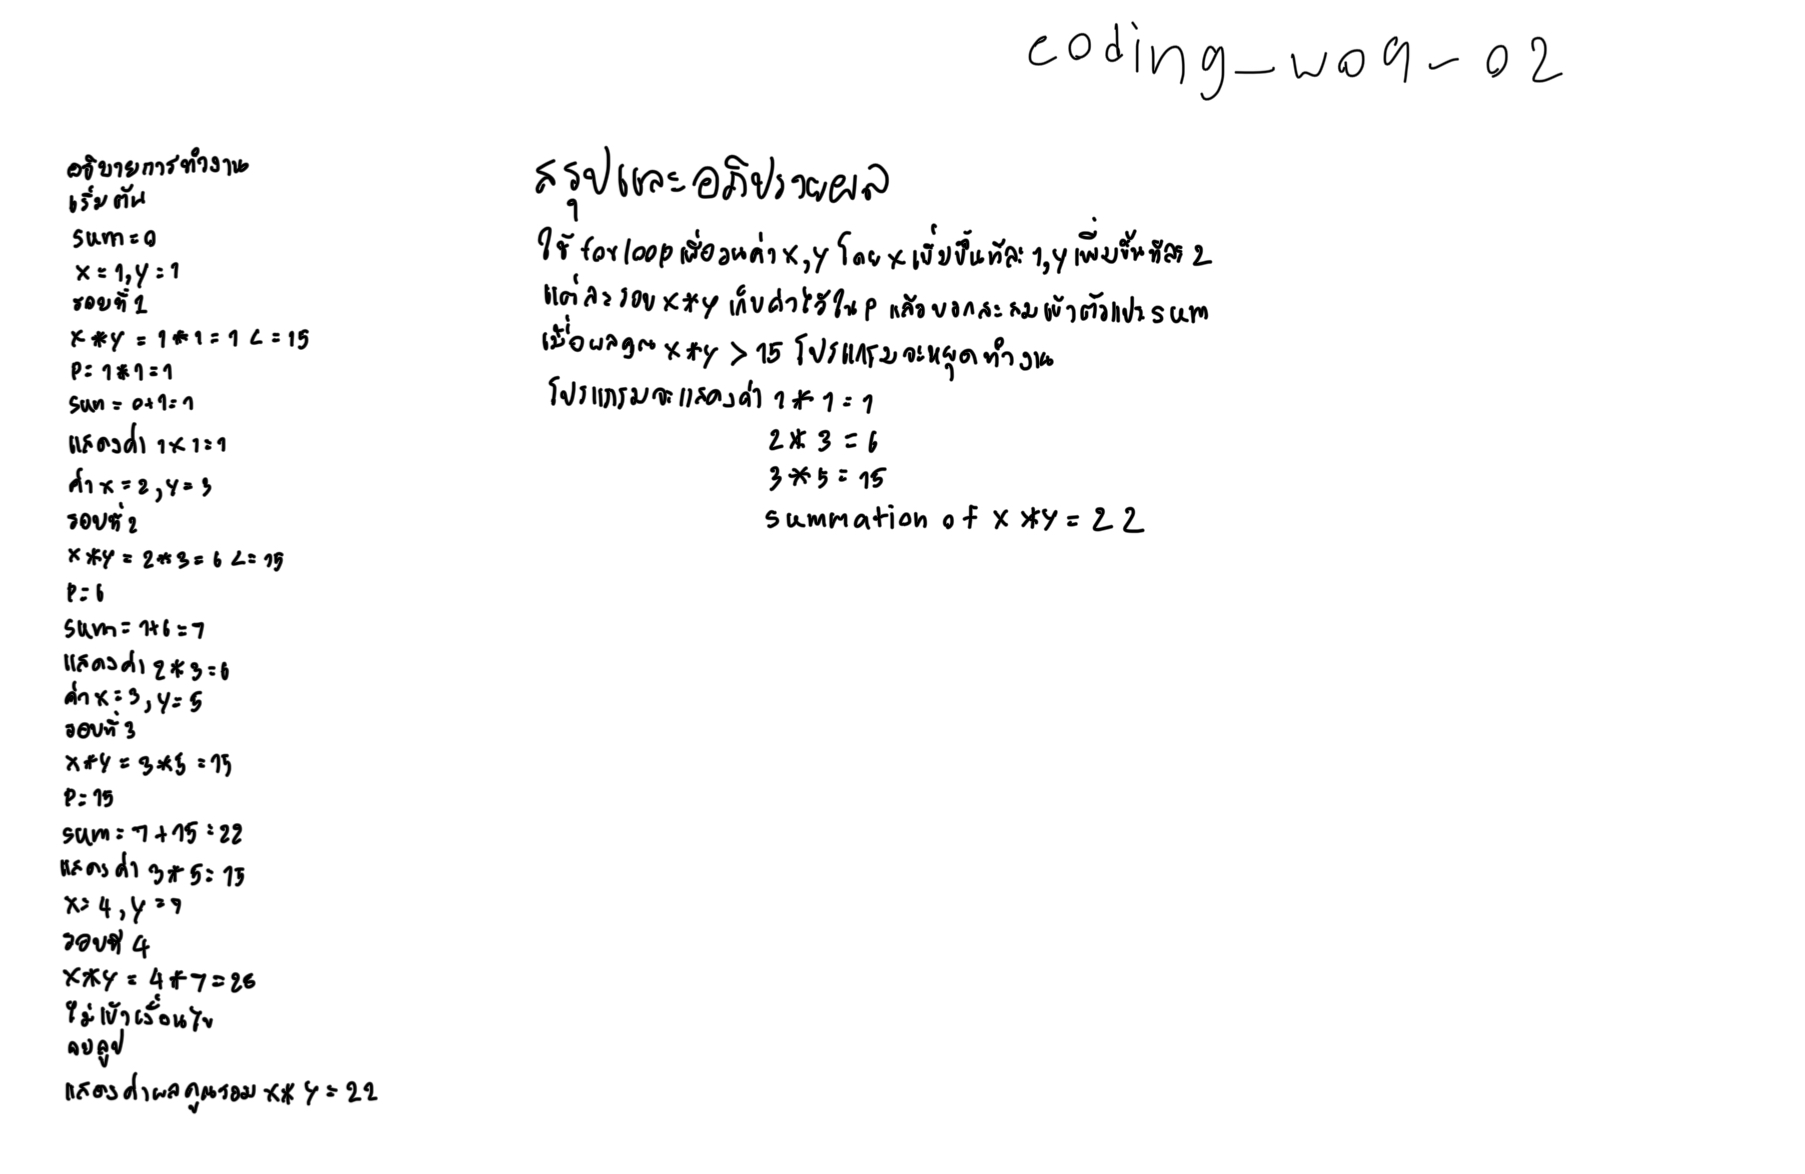 coding_w09-02
อธิบายการทำงาน
เริ่มต้น
sum=0
x=1,y=1
รอบที่ 1
x*y = 1*1=1 <=15
P=1*1=1
sum = 0+1=1
แสดงค่า 1x1=1
ค่า x=2,y=3
รอบที่ 2
x*y = 2*3=6 <=15
P=6
sum=1+6=7
แสดงค่า 2*3=6
ค่า x=3,y=5
รอบที่ 3
x*y = 3*5=15
P=15
sum=7+15=22
แสดงค่า 3*5=15
x=4,y=7
รอบที่ 4
x*y = 4*7=28
ไม่เข้าเงื่อนไข
จบลูป
แสดงค่าผลคูณรวม x*y=22
สรุปและอภิปรายผล
ใช้ for loop เพื่อวนค่า x,y โดย x เพิ่มขึ้นทีละ 1,y เพิ่มขึ้นทีละ 2
แต่ละรอบ x*y เก็บค่าไว้ใน P แล้วบวกสะสมเข้าตัวแปร sum
เมื่อผลคูณ x*y > 15 โปรแกรมจะหยุดทำงาน
โปรแกรมจะแสดงค่า 1*1=1
2*3=6
3*5=15
summation of x*y=22